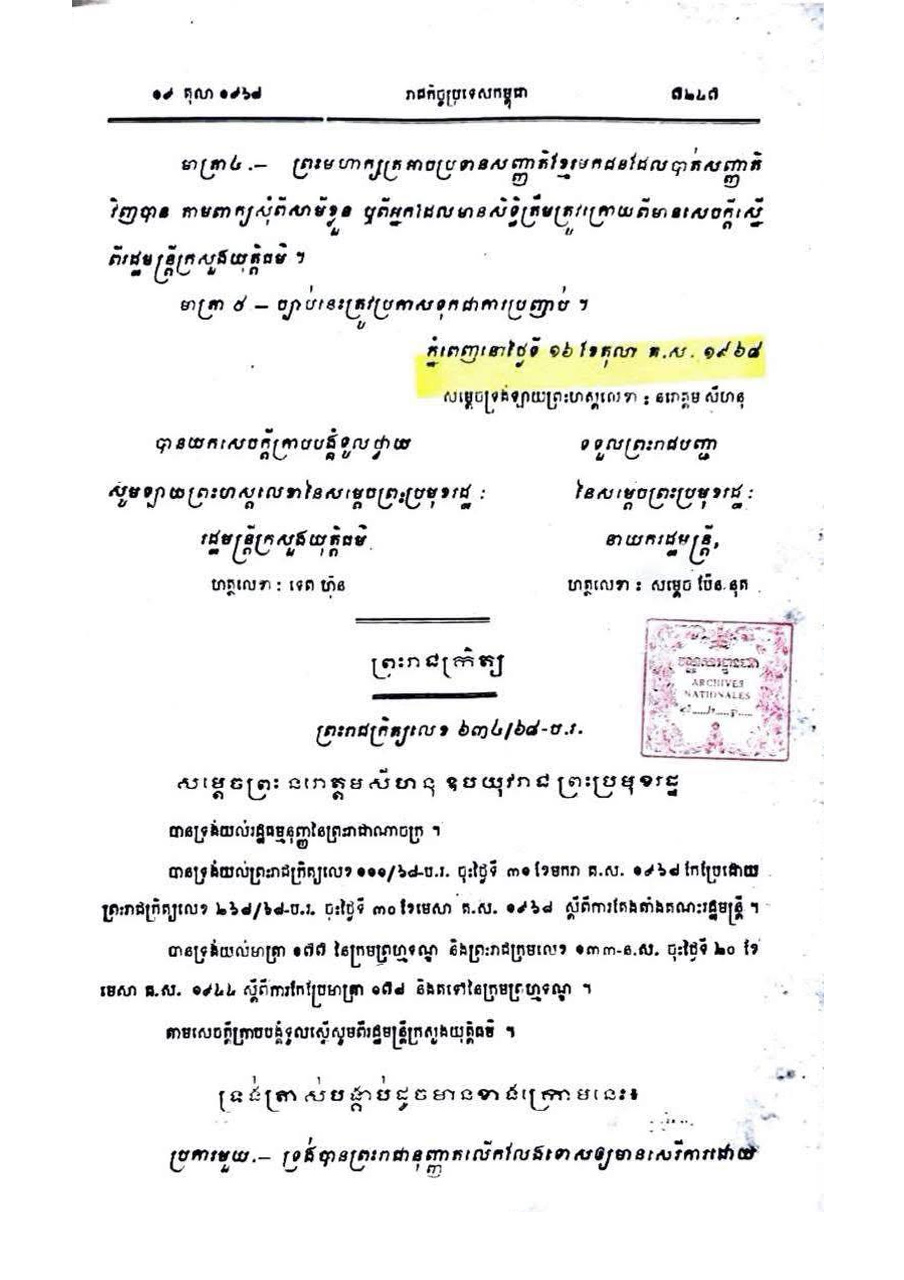 ១៩ តុលា ១៩៦៨ រាជកិច្ចប្រទេសកម្ពុជា ៧២៤៧
មាត្រា៤ .— ព្រះមហាក្សត្រអាចប្រទានសញ្ជាតិខ្មែរមកជនដែលបាត់សញ្ជាតិ
វិញបាន តាមពាក្យសុំពីសាមីខ្លួន ឬពីអ្នកដែលមានសិទ្ធិត្រឹមត្រូវក្រោយពីមានសេចក្តីស្នើ
ពីរដ្ឋមន្ត្រីក្រសួងយុត្តិធម៌ ។
មាត្រា ៩ — ច្បាប់នេះត្រូវប្រកាសទុកជាការប្រញាប់ ។
ភ្នំពេញនៅថ្ងៃទី ១៦ ខែតុលា គ.ស. ១៩៦៨
សម្តេចទ្រង់ឡាយព្រះហស្តលេខា : នរោត្តម សីហនុ
បានយកសេចក្តីក្រាបបង្គំទូលថ្វាយ ទទួលព្រះរាជបញ្ជា
សូមឡាយព្រះហស្តលេខានៃសម្តេចព្រះប្រមុខរដ្ឋ : នៃសម្តេចព្រះប្រមុខរដ្ឋ :
រដ្ឋមន្ត្រីក្រសួងយុត្តិធម៌ នាយករដ្ឋមន្ត្រី,
ហត្ថលេខា : ទេព ហ៊ុន ហត្ថលេខា : សម្តេច ប៉ែន.នុត
ព្រះរាជក្រឹត្យ
ARCHIVES
NATIONALES
ព្រះរាជក្រឹត្យលេខ ៦៣៤/៦៨-ប.រ.
សម្តេចព្រះ នរោត្តមសីហនុ ឧបយុវរាជ ព្រះប្រមុខរដ្ឋ
បានទ្រង់យល់រដ្ឋធម្មនុញ្ញនៃព្រះរាជាណាចក្រ ។
បានទ្រង់យល់ព្រះរាជក្រឹត្យលេខ ១១១/៦៨-ប.រ. ចុះថ្ងៃទី ៣១ ខែមករា គ.ស. ១៩៦៨ កែប្រែដោយ
ព្រះរាជក្រឹត្យលេខ ២៦៨/៦៨-ប.រ. ចុះថ្ងៃទី ៣០ ខែមេសា គ.ស. ១៩៦៨ ស្តីពីការតែងតាំងគណះរដ្ឋមន្ត្រី ។
បានទ្រង់យល់មាត្រា ១៧៧ នៃក្រមព្រហ្មទណ្ឌ និងព្រះរាជក្រមលេខ ១៣៣-ន.ស. ចុះថ្ងៃទី ២០ ខែ
មេសា គ.ស. ១៩៤៤ ស្តីពីការកែប្រែមាត្រា ១៧៨ និងតទៅនៃក្រមព្រហ្មទណ្ឌ ។
តាមសេចក្តីក្រាបបង្គំទូលស្នើសូមពីរដ្ឋមន្ត្រីក្រសួងយុត្តិធម៌ ។
ទ្រង់ត្រាស់បង្គាប់ដូចមានខាងក្រោមនេះ៖
ប្រការមួយ.— ទ្រង់បានព្រះរាជានុញ្ញាតលើកលែងទោសឲ្យមានសេរីការដោយ